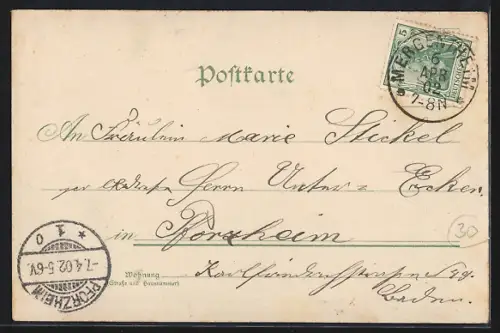 5
MERGENTHEIM
6
APR
02
7-8N
Postkarte
An Fräulein Marie Stickel
per Herrn Unter = Ecker
in Pforzheim
30
Wohnung
(Straße und Hausnummer)
Karlfriedrichstrasse No
Baden.
PFORZHEIM
-7.4.02.5-6V.
* 1 o